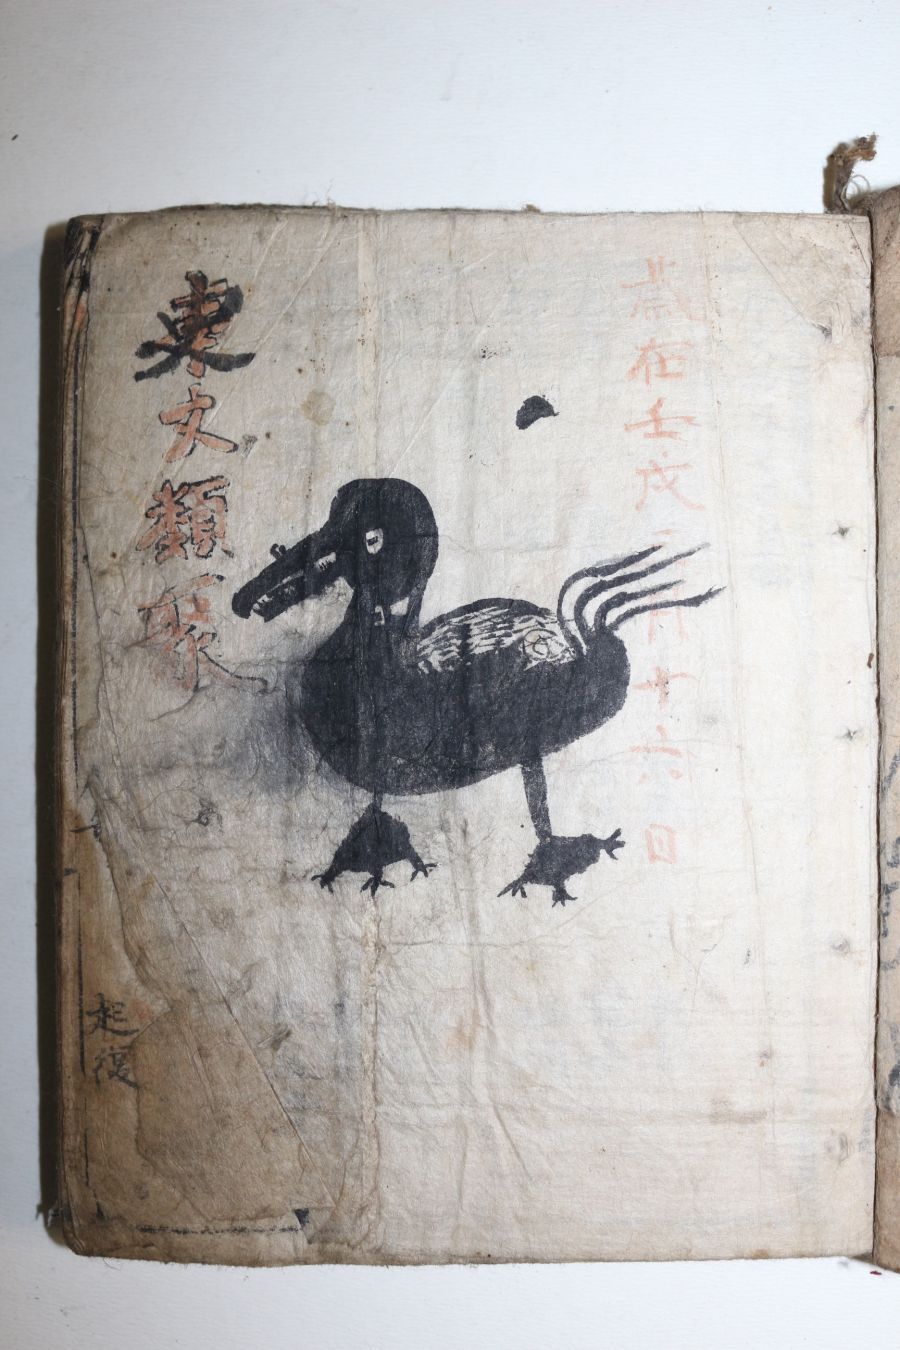 歲在壬戌二月十六日
東文類聚
起復